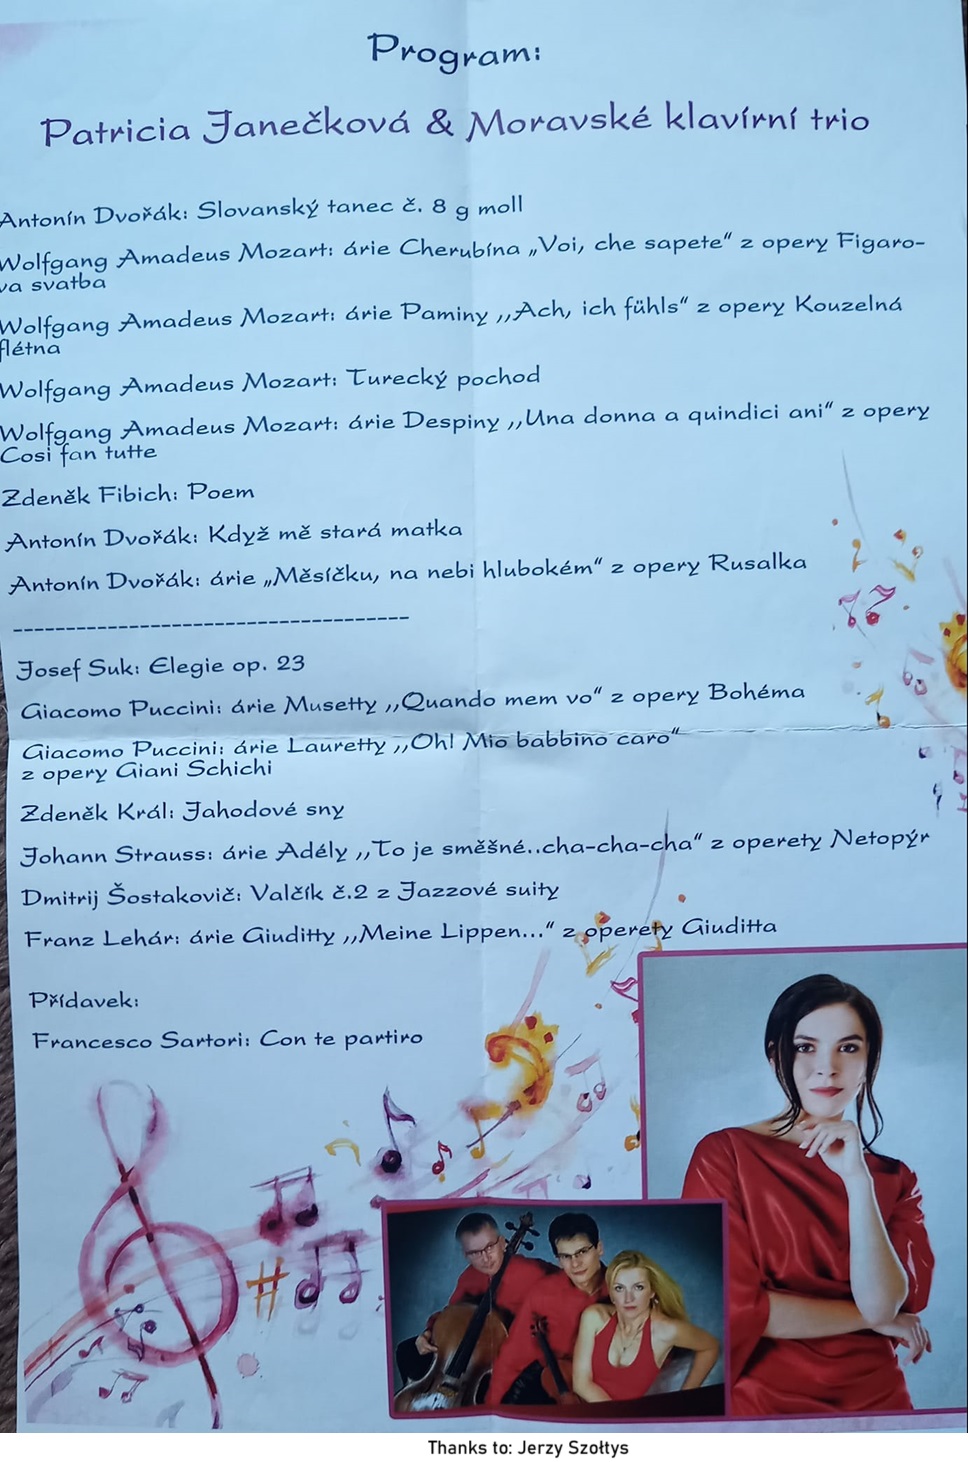 Program:
Patricia Janečková & Moravské klavírní trio
Antonín Dvořák: Slovanský tanec č. 8 g moll
Wolfgang Amadeus Mozart: árie Cherubína „Voi, che sapete“ z opery Figaro-
va svatba
Wolfgang Amadeus Mozart: árie Paminy ,,Ach, ich fühls“ z opery Kouzelná
flétna
Wolfgang Amadeus Mozart: Turecký pochod
Wolfgang Amadeus Mozart: árie Despiny ,,Una donna a quindici ani“ z opery
Cosi fan tutte
Zdeněk Fibich: Poem
Antonín Dvořák: Když mě stará matka
Antonín Dvořák: árie „Měsíčku, na nebi hlubokém“ z opery Rusalka
--------------------------------------
Josef Suk: Elegie op. 23
Giacomo Puccini: árie Musetty ,,Quando mem vo“ z opery Bohéma
Giacomo Puccini: árie Lauretty ,,Oh! Mio babbino caro“
z opery Giani Schichi
Zdeněk Král: Jahodové sny
Johann Strauss: árie Adély ,,To je směšné..cha-cha-cha“ z operety Netopýr
Dmitrij Šostakovič: Valčík č.2 z Jazzové suity
Franz Lehár: árie Giuditty ,,Meine Lippen...“ z operety Giuditta
Přídavek:
Francesco Sartori: Con te partiro
Thanks to: Jerzy Szołtys